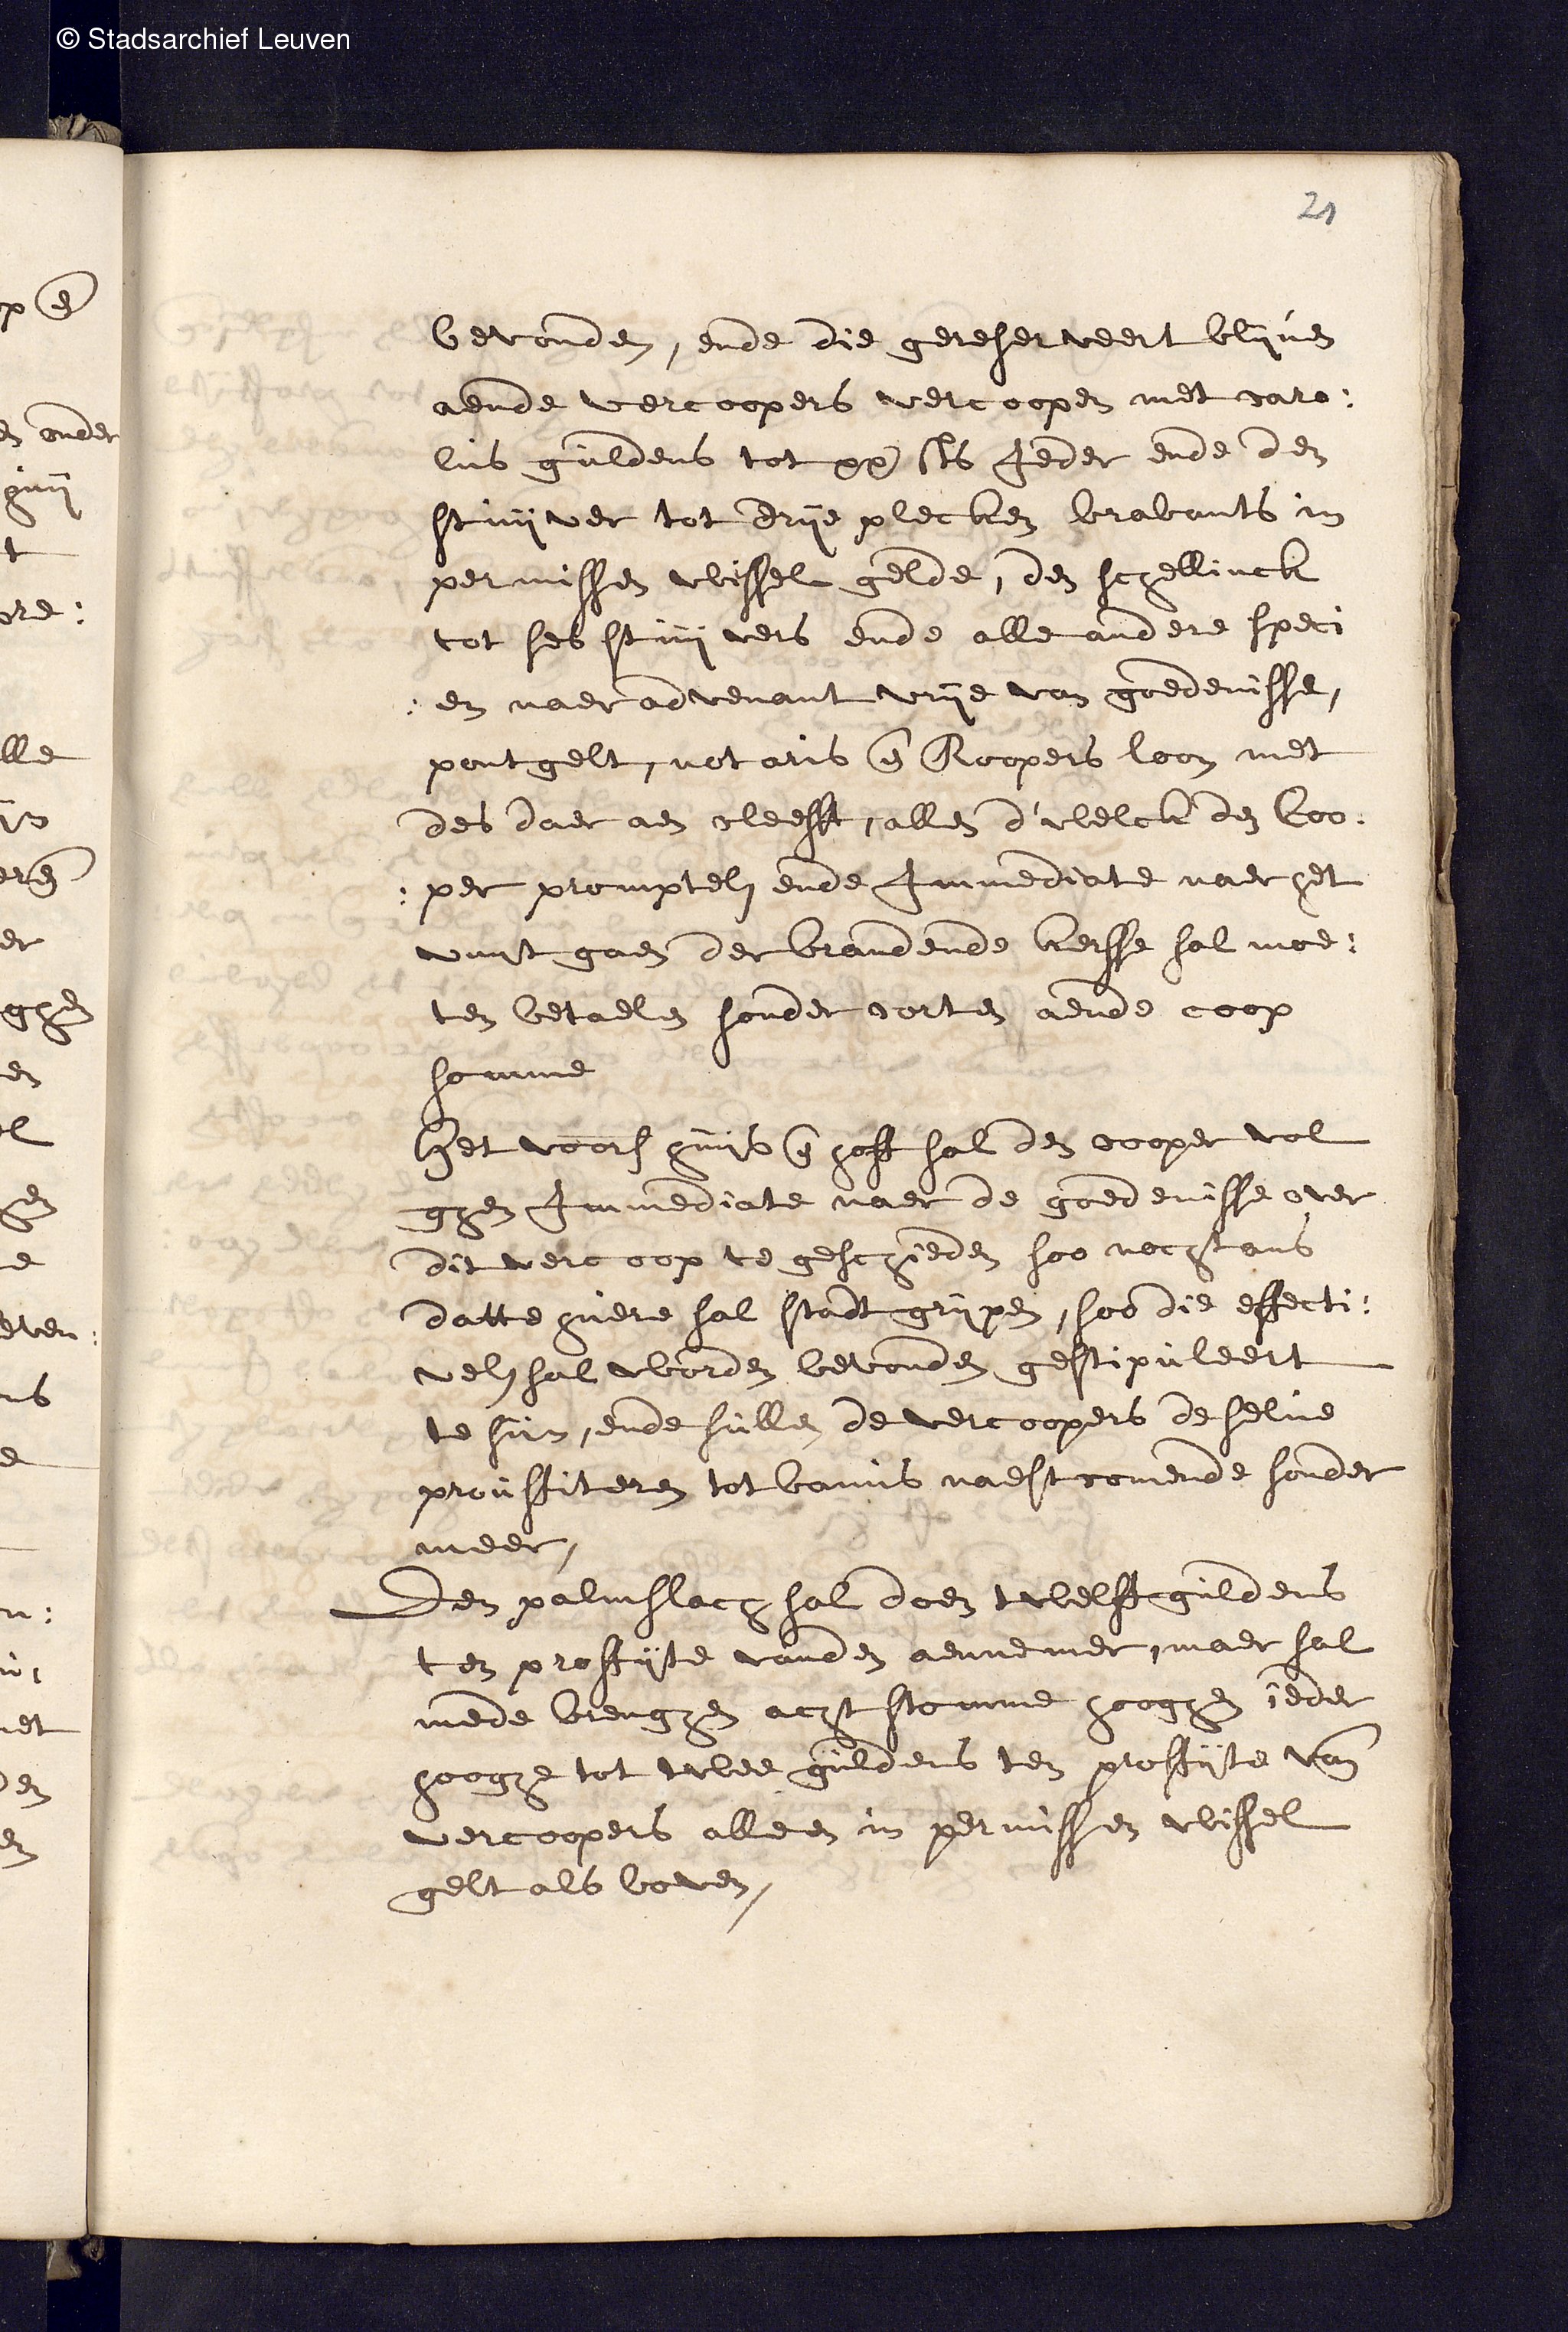 © Stadsarchief Leuven
21
bevonden, ende die gereserveert blijven
aende vercoopers vercoopen met caro:
lus guldens tot xx sts Jeder ende den
stuijver tot drije plecken brabants in
permissen wissel gelde, den schellinck
tot ses stuijvers ende alle andere speci
:en naer advenant vrije van goedenisse,
pontgelt, notaris en Roopers loon met
des daer aen cleefft, allen d'welck den coo:
:per promptel[ijck] ende Immediate naer het
vuijtgaen der brandende kersse sal moe:
ten betaelen sonder corten aende coop
somme
Het voors huijs en hoff sal den cooper vol
ghen Immediate naer de goedenisse over
dit vercoop te geschieden soo nochtans
datte huere sal stadt grijpen, soo die effecti:
vel[ijck] sal worden bevonden gestipuleert
te sijn, ende sullen de vercoopers de selve
prouffiteren tot bamis naestcomende sonder
meer,
Den palmslach sal doen twelff guldens
ten proffijte vanden aennemer, maer sal
mede brenghen acht stomme hooghen ieder
hooghe tot twee guldens ten proffijte van
vercoopers alleen in permissen wissel
gelt als boven,